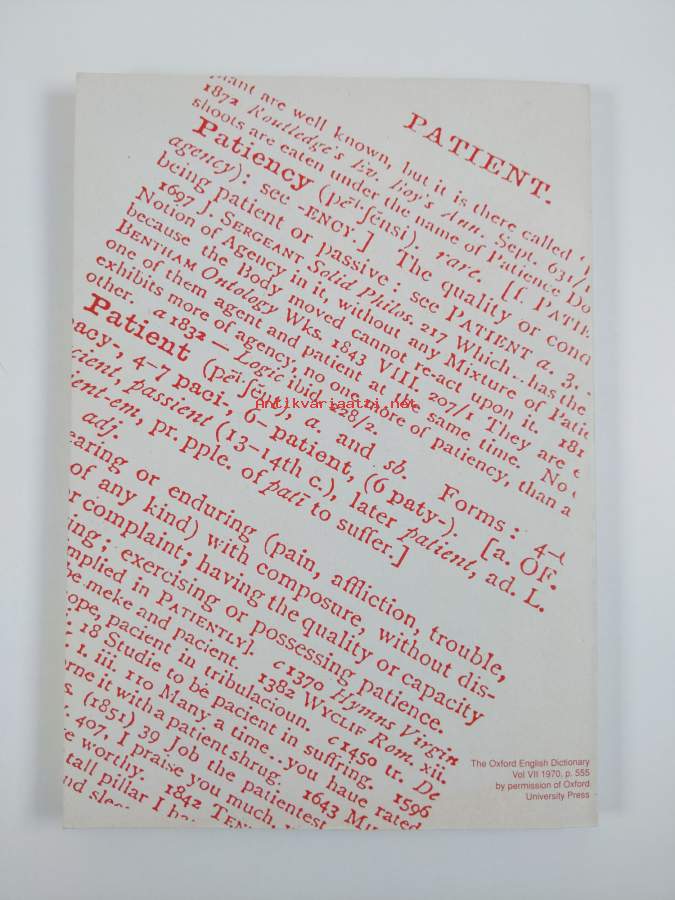 PATIENT.
plant are well known, but it is there called
1872 Routledge's Ev. Boy's Ann. Sept. 631/1
shoots are eaten under the name of Patience Do
Patiency (pēi·ʃĕnsi). rare. [f. PATIE
agency): see -ENCY.] The quality or cond
being patient or passive: see PATIENT a. 3.
1697 J. SERGEANT Solid Philos. 217 Which.. has the
Notion of Agency in it, without any Mixture of Patie
because the Body moved cannot re-act upon it. 181
BENTHAM Ontology Wks. 1843 VIII. 207/1 They are e
one of them agent and patient at the same time. No
exhibits more of agency, no one more of patiency, than a
other. a 1832 — Logic ibid. 228/2.
Patient (pēi·ʃĕnt), a. and sb. Forms: 4-
acy-, 4-7 paci-, 6- patient, (6 paty-). [a. OF.
cient, passient (13-14th c.), later patient, ad. L.
ient-em, pr. pple. of patī to suffer.]
adj.
earing or enduring (pain, affliction, trouble,
of any kind) with composure, without dis-
or complaint; having the quality or capacity
ing; exercising or possessing patience.
mplied in PATIENTLY]. c 1370 Hymns Virgin
be meke and pacient. 1382 WYCLIF Rom. xii.
ope, pacient in tribulacioun. c 1450 tr. De
18 Studie to be pacient in suffring. 1596
1. iii. 110 Many a time..you haue rated
orne it with a patient shrug. 1643
s. (1851) 39 Job the patientest
407, I praise you much,
e worthy. 1842
tall pillar I
nd
Antikvariaatti.net
The Oxford English Dictionary
Vol VII 1970, p. 555
by permission of Oxford
University Press